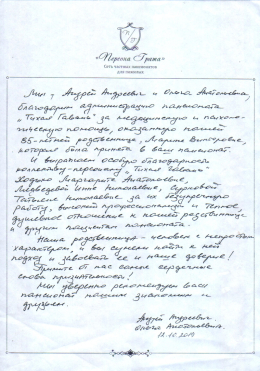 «Перспек Грата»
Сеть частных пансионатов
для пожилых
Мы, Андрей Андреевич и Ольга Анатольевна,
благодарим администрацию пансионата
„Тихая Гавань" за медицинскую и психоло-
гическую помощь, оказанную нашей
85-летней родственнице, Марине Викторовне,
которая была принята в ваш пансионат.
И выражаем особую благодарность
коллективу-персоналу „Тихая Гавань"
Маргарите Анатольевне,
Медведевой Инне Николаевне,
Татьяне Николаевне за их безупречную
работу, высокий профессионализм и теплое,
душевное отношение к нашей родственнице
и другим пациентам пансионата.
Наша родственница - человек с непростым
характером, и вы сумели найти к ней
подход и завоевать ее и наше доверие!
Примите от нас самые сердечные
слова признательности!
Мы уверенно рекомендуем ваш
пансионат нашим знакомым и
друзьям.
Андрей Андреевич.
Ольга Анатольевна.